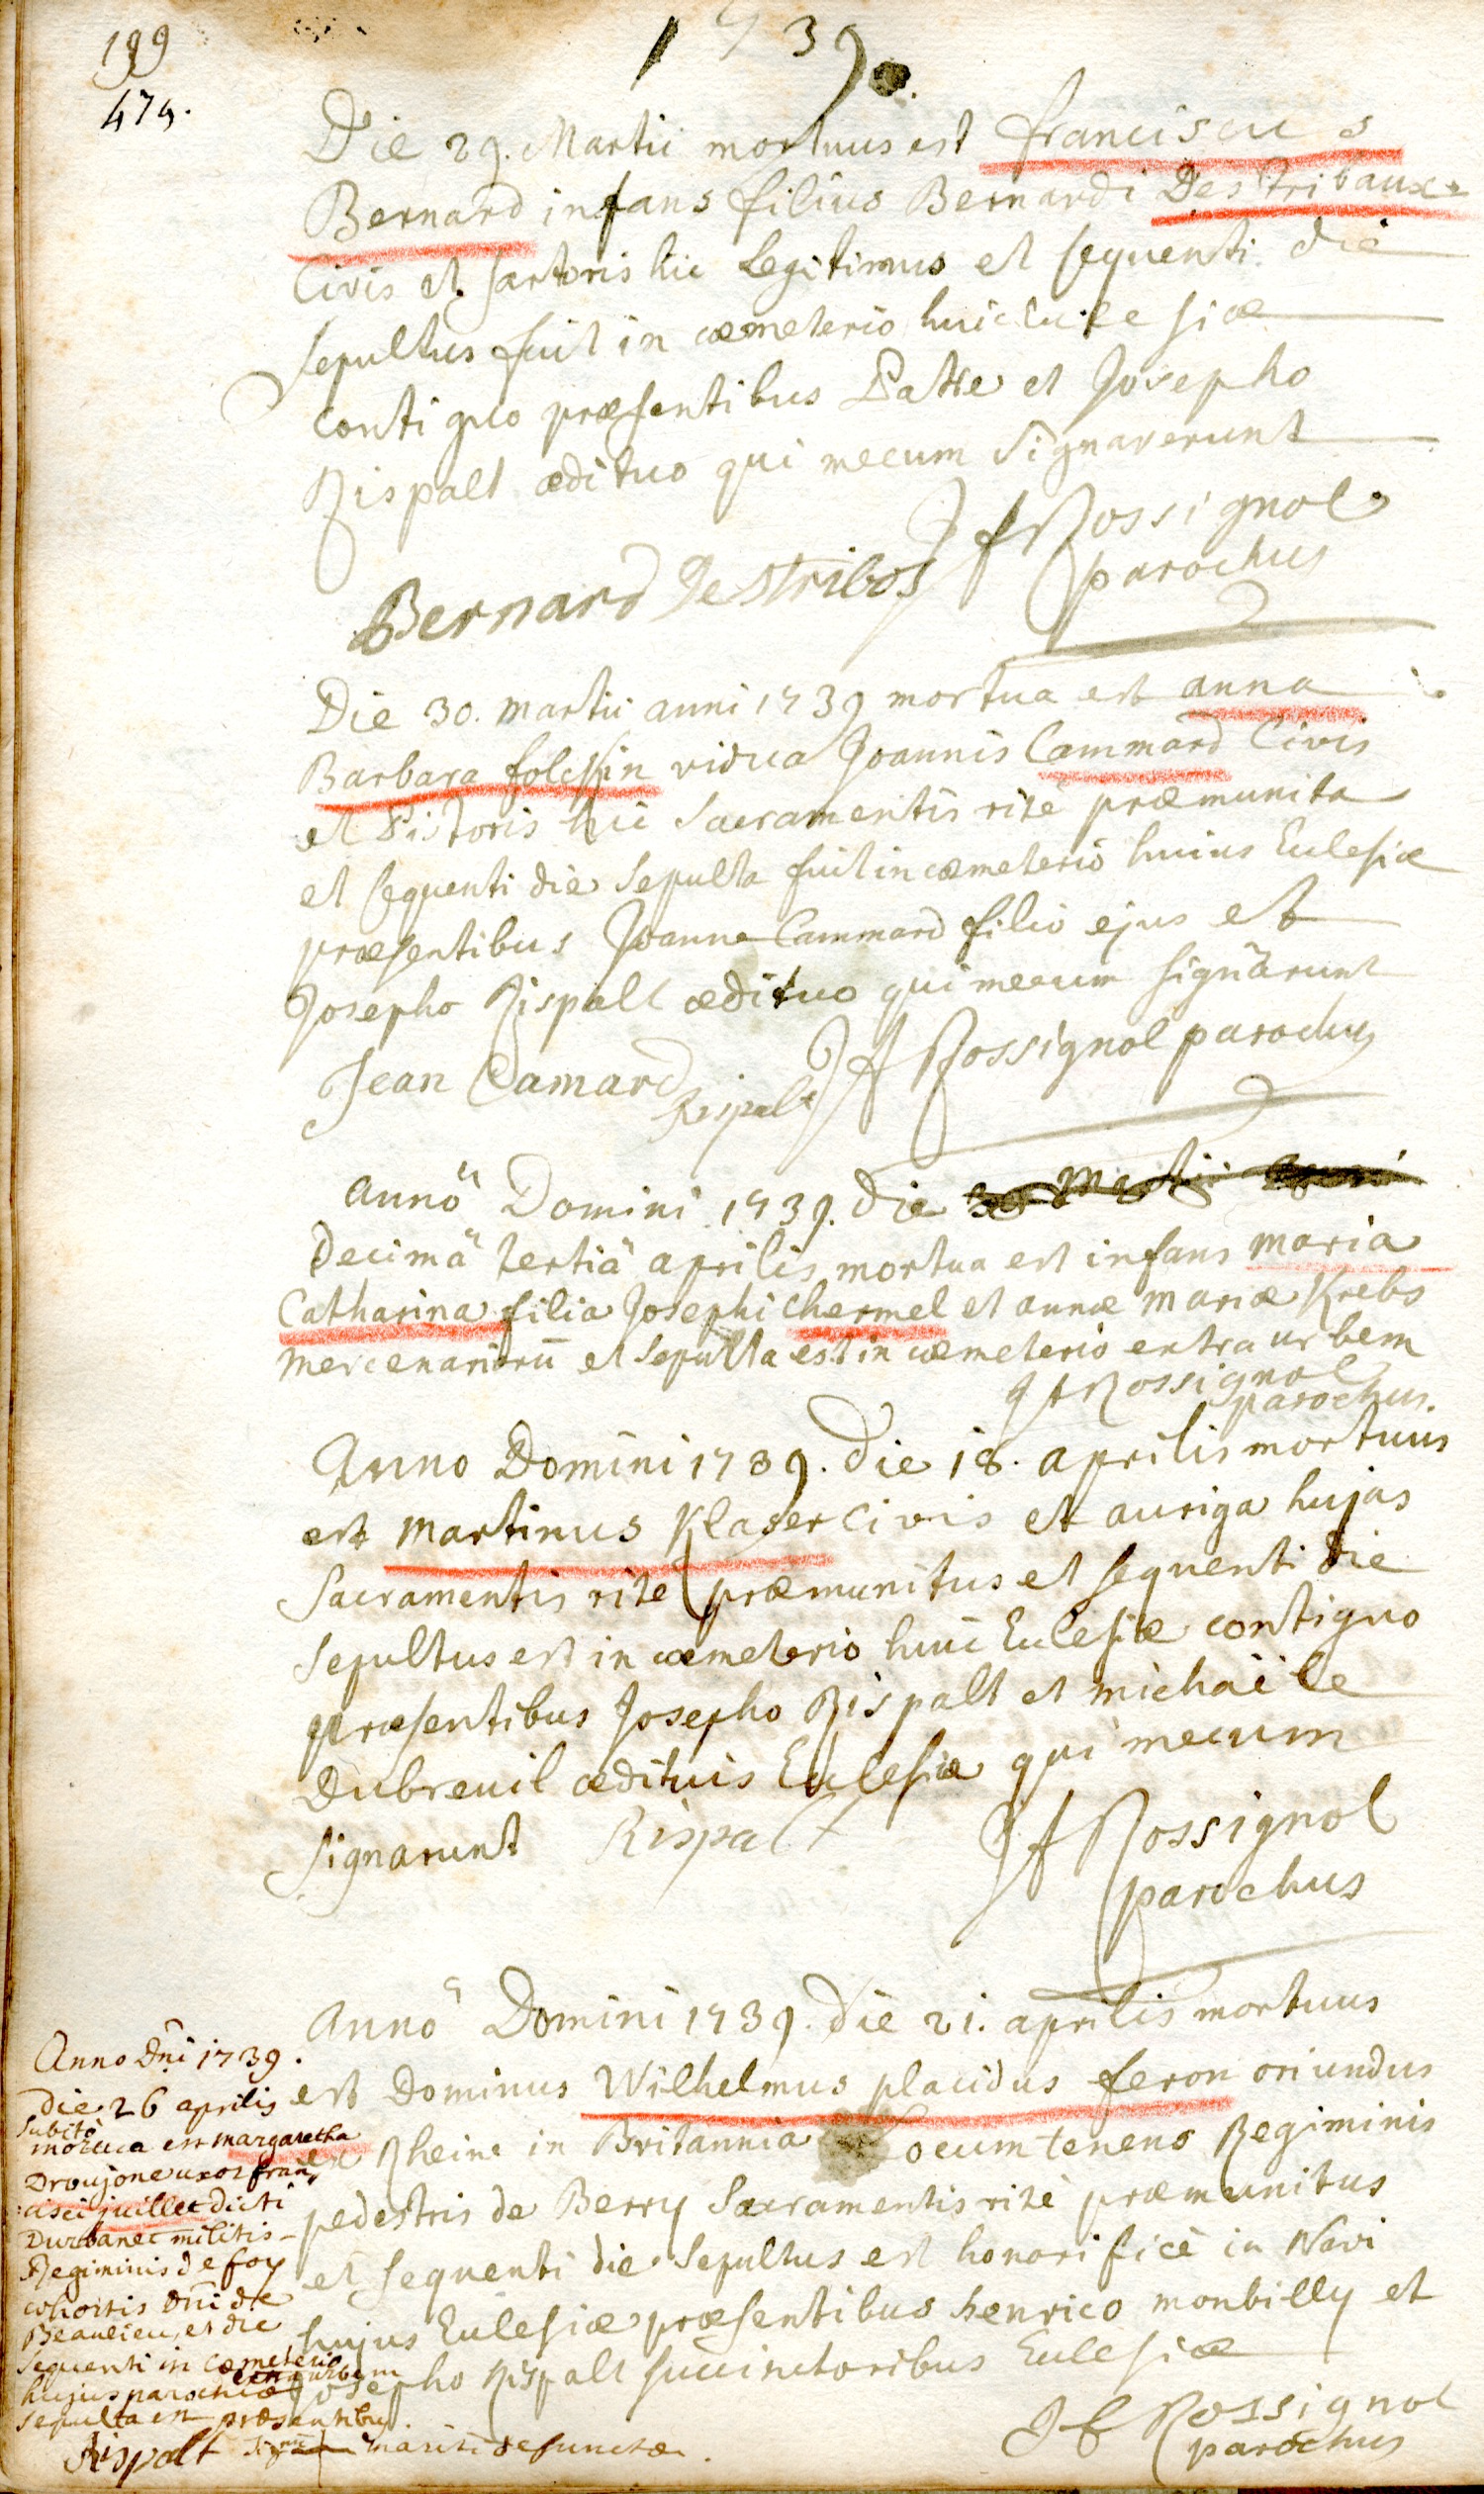 199
474.
1739.
Die 29. Martii mortuus est franciscus
Bernard infans filius Bernardi Destribaux
Civis et sartoris hic Legitimus et sequenti die
sepultus fuit in cœmeterio huic Ecclesiæ
contiguo præsentibus Patre et Josepho
Rispalt ædituo qui mecum signaverunt
JfRossignol
parochus
Bernard Destribos
Die 30. martii anni 1739 mortua est anna
Barbara folchin vidua Joannis Cammard Civis
et Pistoris hic Sacramentis ritè præmunita
et sequenti die Sepulta fuit in cœmeterio huius Ecclesiæ
præsentibus Joanne Cammard filio ejus et
Josepho Rispalt ædituo qui mecum signarunt
JfRossignol parochus
Jean Camard
Rispalt
annô Domini 1739. die
Decimâ tertiâ aprilis mortua est infans maria
Catharina filia Josephi chermel et annæ mariæ Krebs
mercenariorū et sepulta est in cœmeterio extra urbem
JfRossignol
parochus.
Anno Domini 1739. die 18. aprilis mortuus
est martinus Klaser civis et auriga hujas
Sacramentis rite præmunitus et sequenti die
sepultus est in cœmeterio huic Ecclesiæ contiguo
præsentibus Josepho Rispalt et michaële
Dubreuil ædituis Ecclesiæ qui mecum
signarunt Rispalt
JfRossignol
parochus
annô Domini 1739. die 21. aprilis mortuus
est Dominus Wilhelmus placidus feron oriundus
ex Rheine in Britannia Locum tenens Regiminis
pedestris de Berry Sacramentis ritè præmunitus
et sequenti die sepultus est honorificè in Navi
hujus Ecclesiæ præsentibus henrico monbilly et
Josepho Rispalt succinctoribus Ecclesiæ
JfRossignol
parochus
Anno Dñi 1739.
die 26 aprilis
subitò
mortua est margaretha
Droujone uxor fran
:cisci juillet dicti
Durbanet militis
Regiminis de foy
cohortis Dñi de
Beaulieu, et die
sequenti in cœmeterio
extra urbem
hujus parochiæ
sepulta est præsentibus.
Rispalt mariti defunctæ.